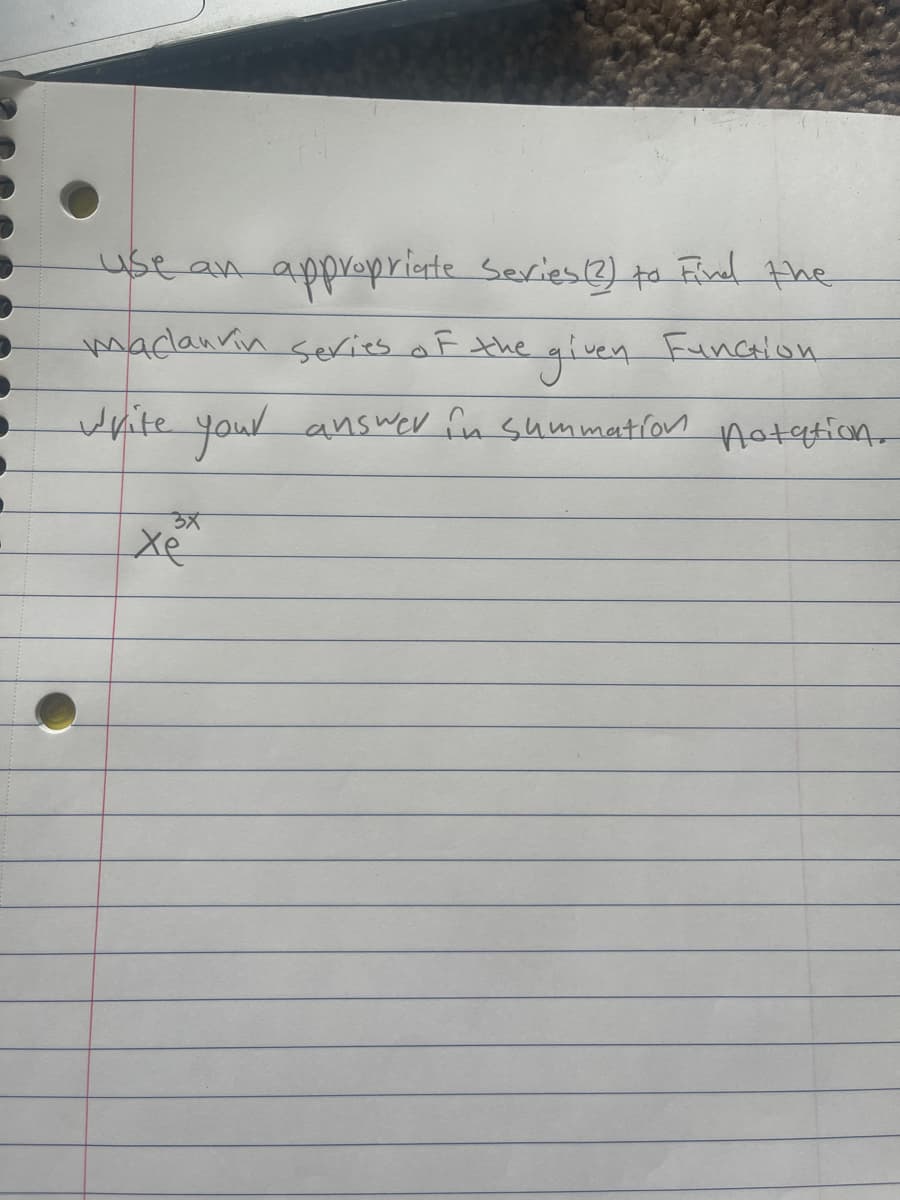 use an appropriate series(2) to Find the
maclaurin series oF the given Function
Write your answer in summation notation.
xe^3x